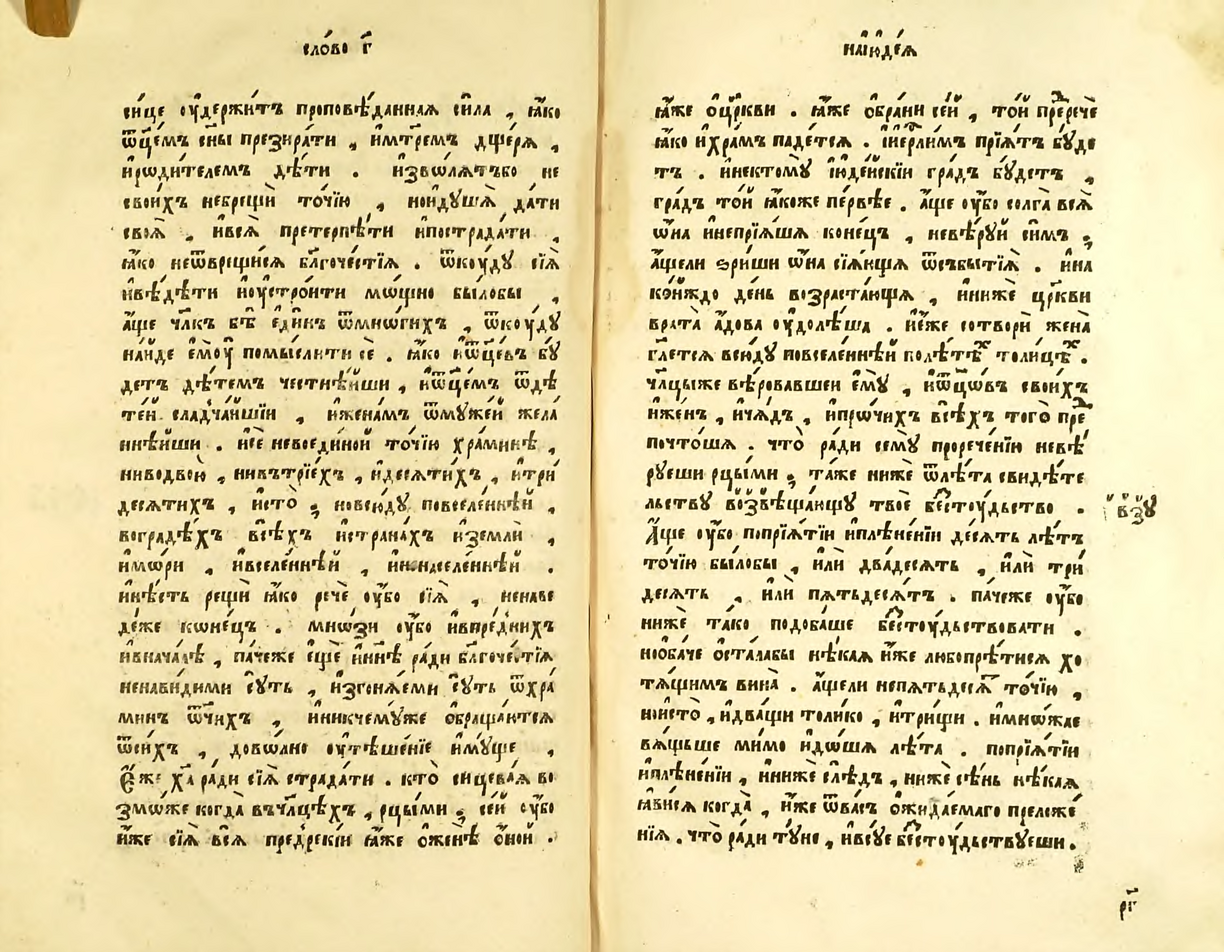 сло́во г҃
сице оу҆держи́тъ проповѣ́даннаѧ си́ла , ꙗ҆́ко
ѿц҃є́мъ сн҃ы презира́ти , и҆мт҃ремъ дщє́рѧ ,
и҆рѡди́телемъ дѣ́ти . и҆зво́лѧтъбо не
свои́хъ небрещѝ то́чїю , нои҆дꙋ́шѧ да́ти
своѧ̀ , и҆всѧ̀ претерпѣ́ти и҆пострада́ти ,
ꙗ҆́ко неѿврещи́сѧ бл҃гоче́стїѧ . ѿкоу́дꙋ сїѧ̀
и҆вѣ́дѣти и҆оу҆стро́ити мо́щно бы́лобы ,
а҆́ще чл҃къ бѣ̀ є҆ди́нъ ѿмно́гихъ , ѿкоу́дꙋ
на́йде є҆моу̀ помы́слити сѐ . ꙗ҆́ко и҆ѿц҃є́въ бꙋ́
детъ дѣ́темъ честнѣ́йши , и҆ѿц҃є́мъ ѿдѣ
те́й сладча́йшїи , и҆жена́мъ ѿмꙋже́й жела
ннѣ́йши . и҆сѐ невоеди́ной то́чїю хра́минѣ ,
ниводвою̀ , нивътрїе́хъ , и҆десѧти́хъ , и҆три
десѧти́хъ , и҆сто̀ ; новсю́дꙋ повселе́ннѣй ,
воградѣ́хъ всѣ́хъ и҆страна́хъ и҆землѝ ,
и҆мо́ри , и҆вселе́ннѣй , и҆ненаселе́ннѣй .
и҆нѣ́сть рещѝ ꙗ҆́ко речѐ оу҆́бо сїѧ̀ , ненаве
де́же коне́цъ . мно́зи оу҆́бо и҆впре́днихъ
и҆внача́лѣ , па́чеже є҆щѐ и҆ни҃нѣ ра́ди бл҃гоче́стїѧ
ненави́дими сꙋ́ть , и҆згонѧ́еми сꙋ́ть ѿхра́
минъ ѿч҃ихъ , и҆никчемꙋ́же ѡ҆браща́ютсѧ
ѿси́хъ , дово́лно оу҆тѣше́нїе и҆мꙋ́ще ,
є҆́же хс҃а ра́ди сїѧ̀ страда́ти . кто̀ сицева́ѧ во
змо́же когда̀ въчл҃цѣхъ , рцы́ми ; се́й оу҆́бо
и҆́же сїѧ̀ всѧ̀ предре́кїи ꙗ҆́же ѡ҆женѣ̀ ѻ҆́ной .
наїю҆де́ѧ
ꙗ҆́же ѡ҆цр҃кви . ꙗ҆́же ѡ҆бра́ни се́й , то́й пре́рече
ꙗ҆́ко и҆хра́мъ паде́тсѧ . и҆і҆ерⷭ҇ли́мъ прїѧ́тъ бꙋ́де
тъ . и҆нектомꙋ̀ і҆юде́йскїи гра́дъ бꙋ́детъ ,
гра́дъ то́й ꙗ҆́коже пе́рвѣе . а҆́ще оу҆́бо солга̀ всѧ̀
ѡ҆́на и҆непрїѧ́шѧ коне́цъ , невѣ́рꙋй си́мъ ;
а҆́щели ѕри́ши ѡ҆́на сїѧ́ющѧ ѿсъбы́тїѧ . и҆на
ко́йждо де́нь возраста́ющѧ , и҆нижѐ цр҃кви
врата̀ а҆́дова оу҆долѣ́ша . и҆є҆́же сотворѝ жена̀
гл҃етсѧ всю́дꙋ повселе́ннѣй полѣ́тѣхъ толи́цѣхъ .
чл҃цыже вѣ́ровавшеи є҆мꙋ̀ , и҆ѿц҃ѡ́въ свои́хъ
и҆же́нъ , и҆ча́дъ , и҆про́чихъ всѣ́хъ того̀ пре
почто́шѧ . что̀ ра́ди семꙋ̀ прорече́нїю невѣ́
рꙋеши рцы́ми ; та́же нижѐ ѿлѣ́та свидѣ́те
льствꙋ возвѣща́ющꙋ твоѐ бестоу́дьство .
А҆́ще оу҆́бо попрїѧ́тїи и҆плѣне́нїи де́сѧть лѣ́тъ
то́чїю бы́лобы , и҆лѝ два́десѧть , и҆лѝ три́
десѧть , и҆лѝ пѧтьдесѧ́тъ . па́чеже оу҆́бо
нижѐ та́ко подоба́ше бестоу́дьствовати .
но҆ба́че ѡ҆ста́лабы нѣ́каѧ и҆́же любопрѣ́тисѧ хо
тѧ́щимъ вина̀ . а҆́щели непѧтьдесѧ́т то́чїю ,
но҆исто̀ , и҆два́щи толи́ко , и҆три́щи . и҆мно́жае
вѧ́щьше мимо и҆до́шѧ лѣ́та . попрїѧ́тїи
и҆плѣне́нїи , и҆нижѐ слѣ́дъ , нижѐ сѣ́нь нѣ́каѧ
ꙗ҆ви́сѧ когда̀ , и҆́же ѿва́съ ѡ҆жида́емаго преложе́
нїѧ . что̀ ра́ди тꙋ́не , и҆всꙋ́е бестоу́дьствꙋеши .
рг҃